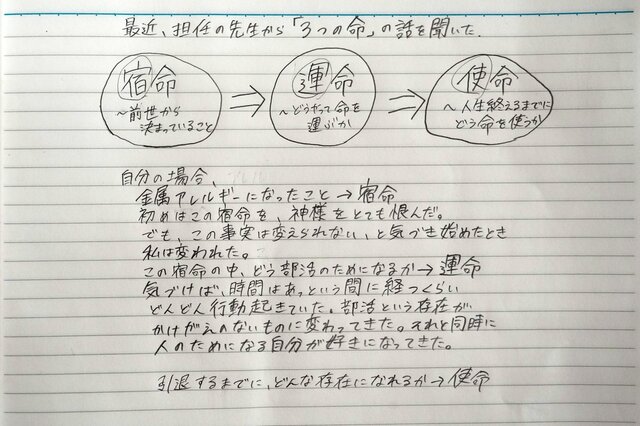 最近、担任の先生から「3つの命」の話を聞いた.
宿命
~前世から
決まっていること
⇒
運命
~どうやって命を
運ぶか
⇒
使命
~人生終えるまでに
どう命を使うか
自分の場合、
金属アレルギーになったこと→宿命
初めはこの宿命を、神様をとても恨んだ。
でも、この事実は変えられない、と気づき始めたとき
私は変われた。
この宿命の中、どう部活のためになるか→運命
気づけば、時間はあっという間に経つくらい
どんどん行動起きていた。部活という存在が
かけがえのないものに変わってきた。それと同時に
人のためになる自分が好きになってきた。
引退するまでに、どんな存在になれるか→使命